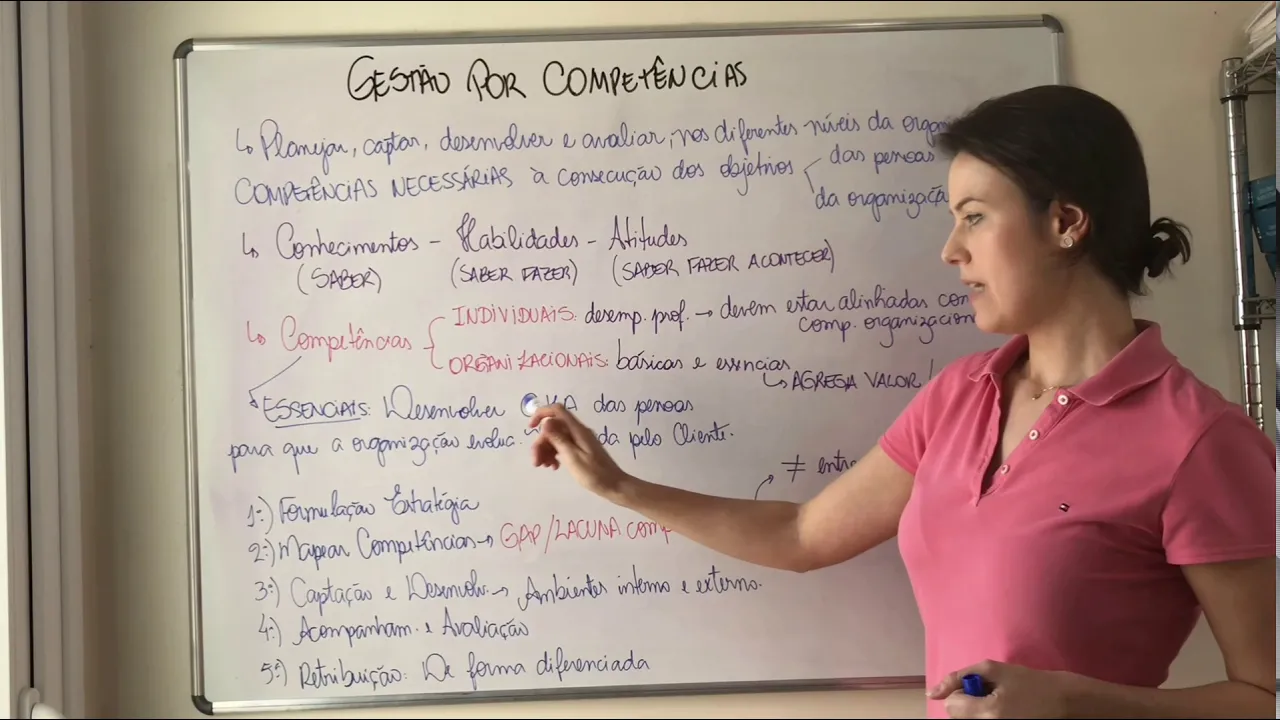 GESTÃO POR COMPETÊNCIAS
↳ Planejar, captar, desenvolver e avaliar, nos diferentes níveis da
COMPETÊNCIAS NECESSÁRIAS à consecução dos objetivos das pessoas
da organização
↳ Conhecimentos - Habilidades - Atitudes
(SABER) (SABER FAZER) (SABER FAZER ACONTECER)
↳ Competências { INDIVIDUAIS: desemp. prof. → devem estar alinhadas
comp.
ORGANIZACIONAIS: básicas e essenciais
↳ AGREGA VALOR
ESSENCIAIS: Desenvolver das pessoas
para que a organização evolua pelo Cliente.
≠
1º) Formulação Estratégia
2º) Mapear Competências → GAP/LACUNA
3º) Captação e Desenvolv. → Ambientes interno e externo.
4º) Acompanham. e Avaliação
5º) Retribuição: De forma diferenciada